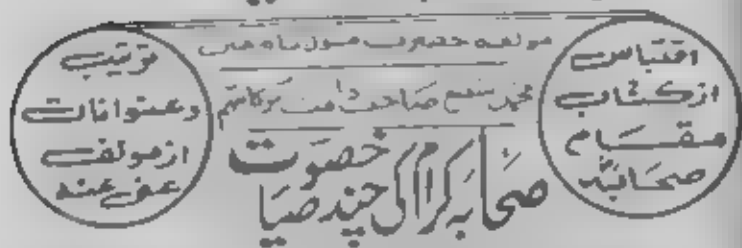 اقتباس
از کتاب
مقام
صحابہؓ
مولفہ حضرت مولانا مفتی
محمد شفیع صاحب دامت برکاتہم
صحابہ کرام کی چند خصوصیات
ترتیب
وعنوانات
از مولف
عفی عنہ